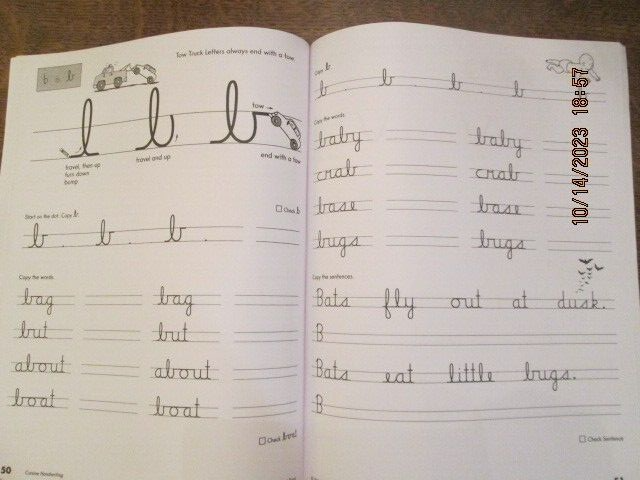 Tow Truck Letters always end with a tow.
b = b
tow →
travel, then up
turn down
bump
travel and up
end with a tow
Start on the dot. Copy b.
Check b
b b b
Copy the words.
bag bag
but but
about about
boat boat
Check
50 Cursive Handwriting
Copy b.
b b b b
Copy the words.
baby baby
crab crab
base base
bugs bugs
Copy the sentences.
Bats fly out at dusk.
B
Bats eat little bugs.
B
Check Sentence
10/14/2023 18:57